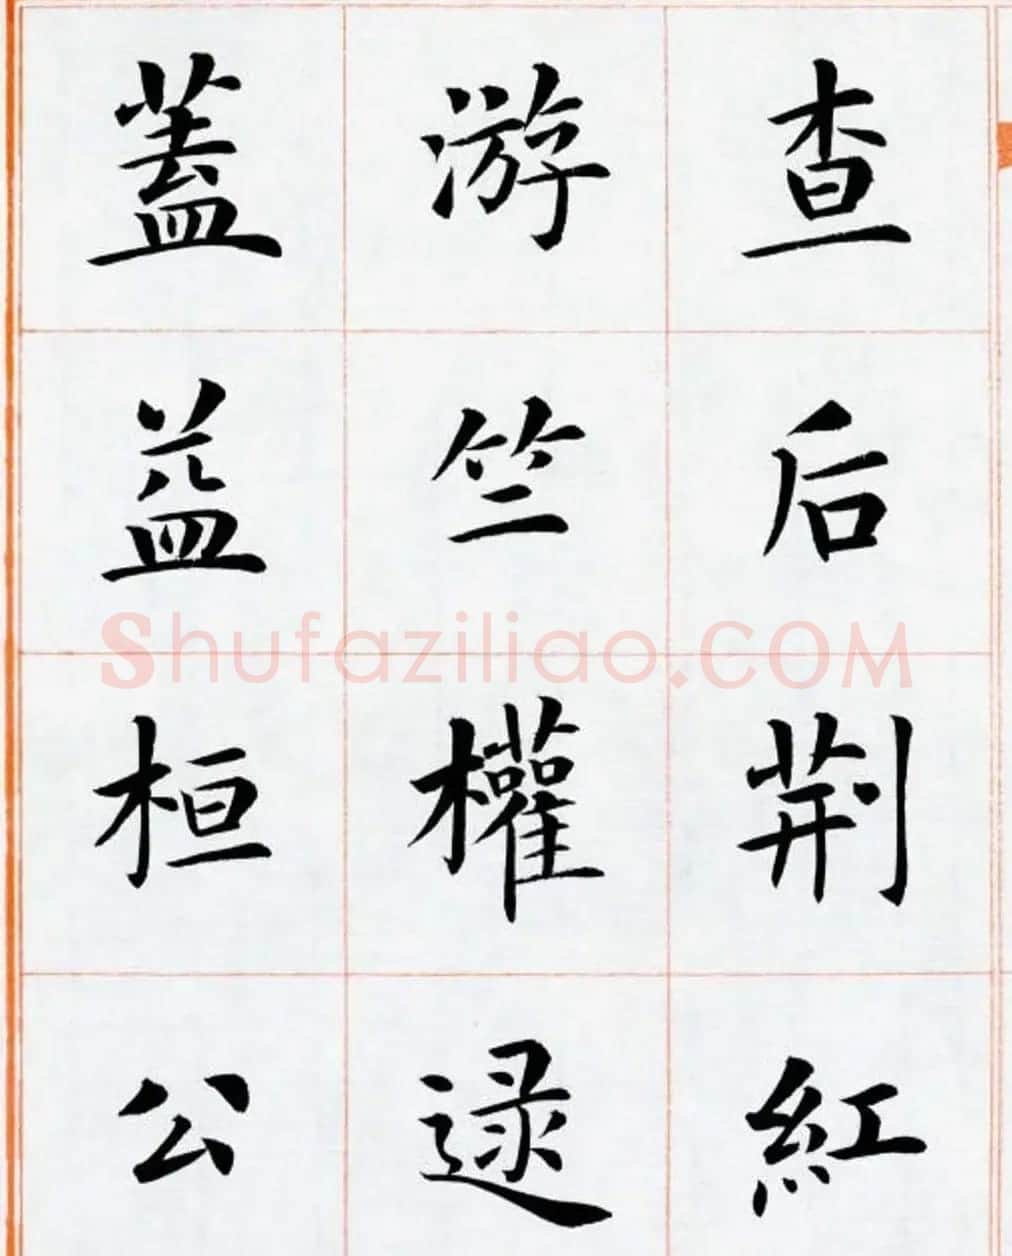 查后荆紅
游竺權逯
蓋益桓公
Shufaziliao.COM